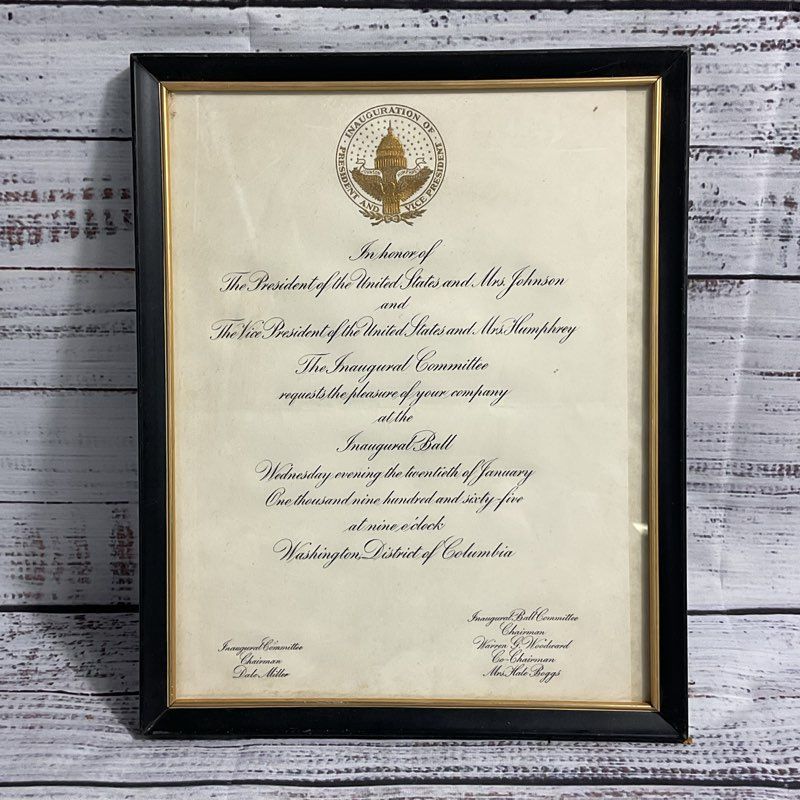 INAUGURATION OF
PRESIDENT AND VICE PRESIDENT
In honor of
The President of the United States and Mrs. Johnson
and
The Vice President of the United States and Mrs. Humphrey
The Inaugural Committee
requests the pleasure of your company
at the
Inaugural Ball
Wednesday evening the twentieth of January
One thousand nine hundred and sixty-five
at nine o'clock
Washington, District of Columbia
Inaugural Committee
Chairman
Dale Miller
Inaugural Ball Committee
Chairman
Warren G. Woodward
Co-Chairman
Mrs. Hale Boggs